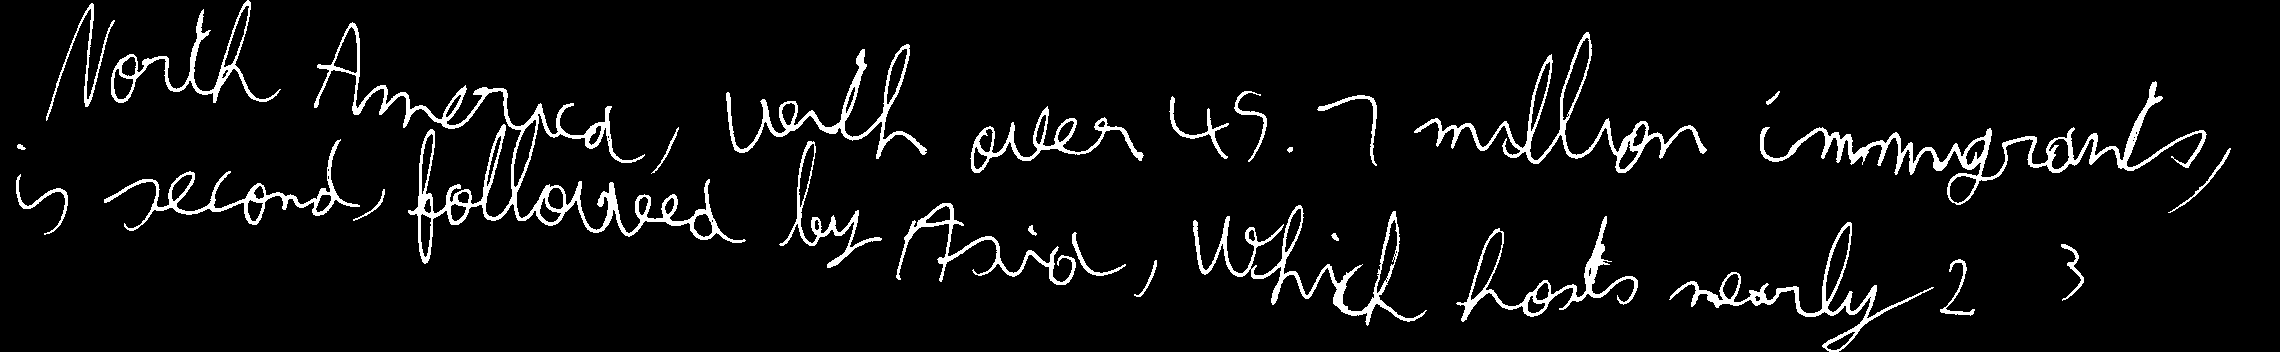 North America, with over 45.7 million immigrants,
is second, followed by Asia, which hosts nearly 2 3